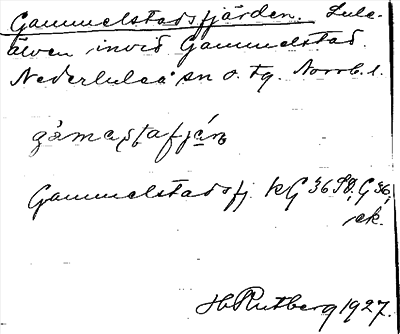 Gammelstadsfjärden. Lule-
älven invid Gammelstad.
Nederluleå sn o. tg. Norrb. l.
gàmastafján
Gammelstadsfj. kG 36 SO, G 36,
ek.
H Rutberg 1927.